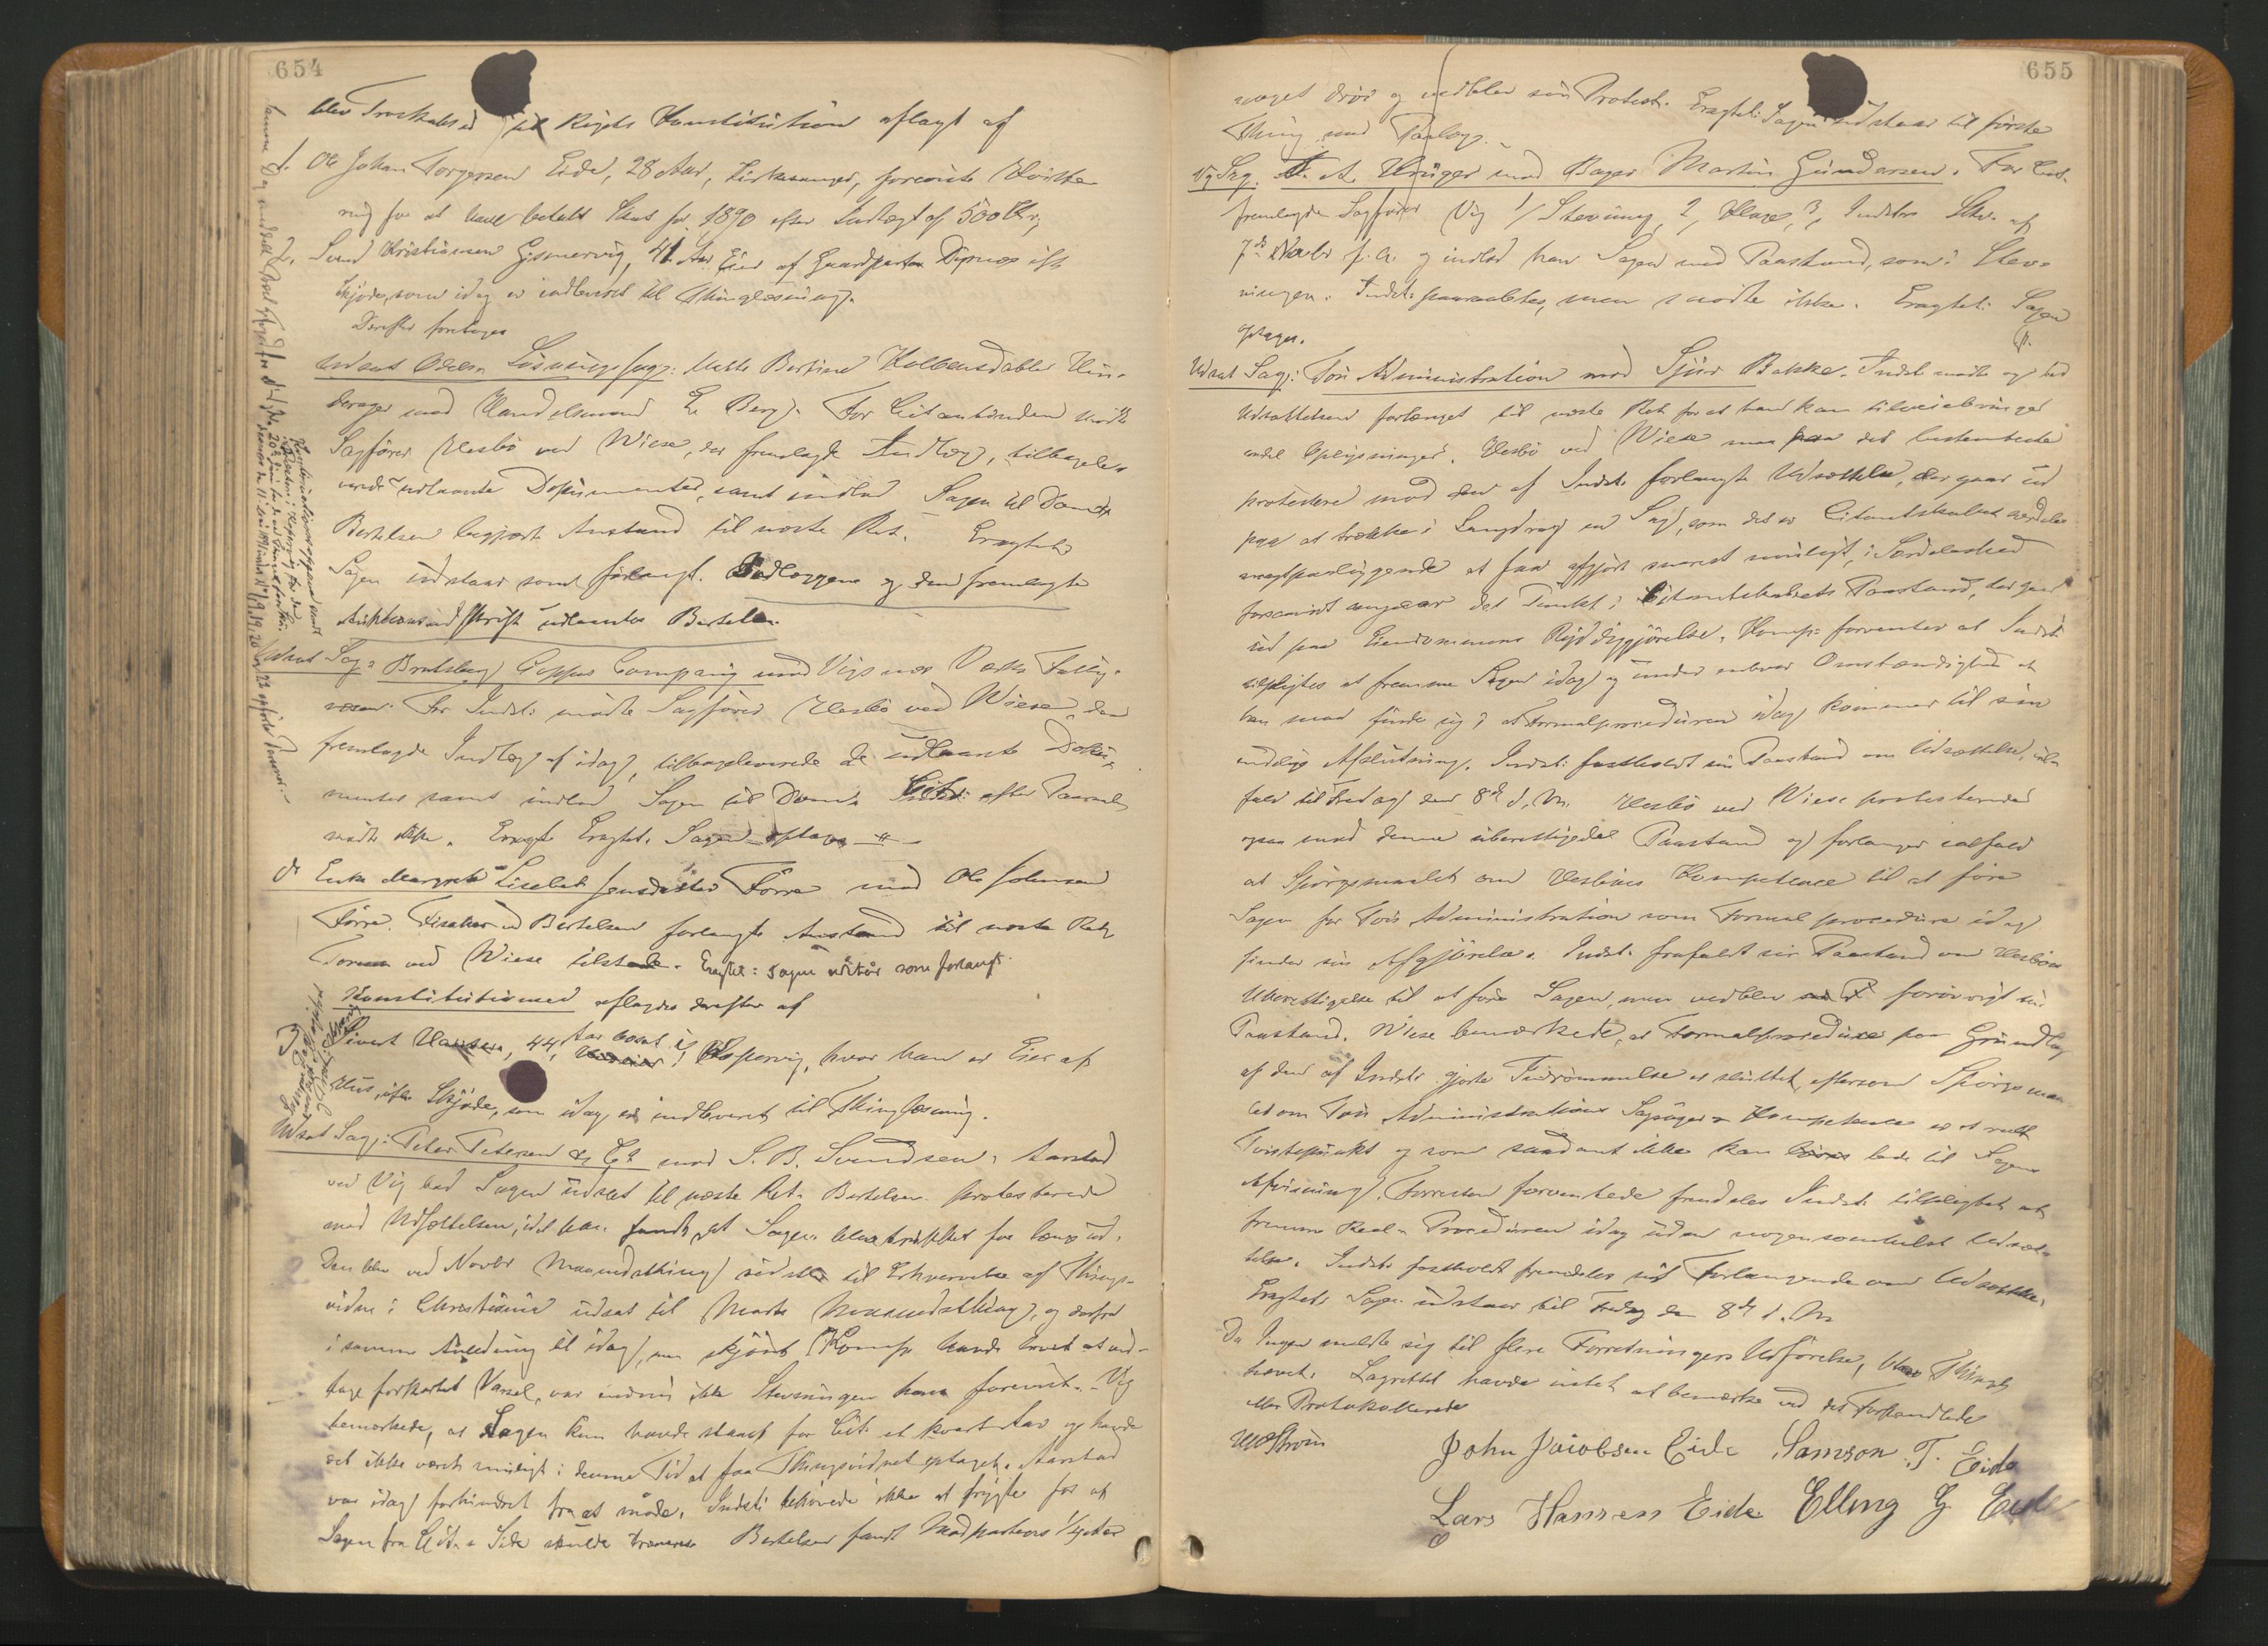 654
blev Troskabsed til Rigets Konstitution aflagt af
1. Ole Johan Torgersen Eide, 28 Aar, Kirkesanger, foreviste Kvitte-
ring for at have betalt Skat for 1890 efter Indtægt af 500 Kr,
2. Svend Kristiansen Gismervig, 41 Aar Eier af Gaardparten Dysnæs ifl.
Skjøde, som idag er indleveret til Thinglæsning.
Derefter foretoges
Udsat Odels Løsningssag: Mette Bertine Kolbensdatter Hin-
derager mod Handelsmand E. Berg. For Citantinden mødte
Sagfører Hesbø ved Wiese, der fremlagde Indlæg, tilbagelev-
erede udlaante Dokumenter, samt indlod Sagen til Doms.
Bertelsen begjærte Anstand til næste Ret. Eragtet:
Sagen udstaar som forlangt. Indlæggene og den fremlagte
udskrift udlaantes Bertelsen.
Udsat Sag: Bratsberg Copper Company mod Vigsnæs Værks Fattig-
væsen. For Indst: mødte Sagfører Hesbø ved Wiese, der
fremlagde Indlæg af idag, tilbageleverede de udlaante Doku-
menter samt indlod Sagen til Doms. Citn: efter Paaraab
mødte ikke. Eragtet: Sagen optages
do Enke Margrete Liselet Jensdatter Førre mod Ole Johnsen
Førre. Bertelsen forlangte Anstand til næste Ret,
ved Wiese tilstede. Eragtet: Sagen udstår som forlangt.
Konstitutionsed aflagdes derefter af
3 Sivert Hansen, 44, Aar bosat i Kopervig, hvor han er Eier af
Hus, ifl. Skjøde, som idag er indleveret til Thinglæsning.
Udsat Sag: Peter Petersen & Co mod S. B. Svendsen. Aarstad
ved Vig bad Sagen udsat til næste Ret. Bertelsen protesterede
mod Udsættelsen, idet han fandt, at Sagen blev trukket for længe ud.
Den blev ved Novbr Maanedsthing udsat til Erhvervelse af Things-
vidne i Christiania udsat til Marts Maanedsthing, og derfra
i samme Anledning til idag, men skjønt Komp: havde lovet at ud-
tage forkortet Varsel, var endnu ikke Stevningen ham forevist. Vig
bemærkede, at Sagen kun havde staaet for Cit: et kvart Aar og havde
det ikke været muligt i denne Tid at faa Thingsvidnet optaget. Aarstad
var idag forhindret fra at møde. Indst: behøvede ikke at frygte for at
Sagen fra Cit:s Side skulde træneres. Bertelsen fandt Modpartens
655
noget drøi og vedblev sin Protest. Eragtet: Sagen udstaar til første
Thing med Paalæg.
Ny Sag. A. Krüger mod Bager Martin Gundersen. For Cit.
fremlagde Sagfører Vig 1/ Stevning, 2, Klage, 3, Indstn Skr. af
7de Novbr f. A. og indlod han Sagen med Paastand, som i Stev-
ningen. Indst: paaraabtes, men mødte ikke. Eragtet: Sagen
optages.
Udsat Sag: Tois Administration mod Sjur Bakke. Indst: mødte og bad
Udsættelsen forlænget til næste Ret for at han kan tilveiebringe
endel Oplysninger. Hesbø ved Wiese maa paa det bestemteste
protestere mod den af Indst. forlangte Udsættelse, der gaar ud
paa at trække i Langdrag en Sag, som det er Citantskabet særdeles
magtpaaliggende at faa afgjort snarest muligt, i Særdeleshed
forsaavidt angaar det Punkt i Citantskabets Paastand, der gaar
ud paa Eiendommens Ryddiggjørelse. Komp: forventer at Indst:
tilpligtes at fremme Sagen idag og under enhver Omstændighed at
han maa finde sig i at Formalproceduren idag kommer til sin
endelige Afslutning. Indst: fastholdt sin Paastand om Udsættelse, ialt-
fald til Fredag den 8de d. M. Hesbø ved Wiese protesterede
ogsaa mod denne uberettigede Paastand og forlanger ialfald
at Spørgsmaalet om Hesbøes Kompetence til at føre
Sagen for Tois Administration som Formalprocedure idag
finder sin Afgjørelse. Indst. frafaldt sin Paastand om Hesbøes
Uberettigelse til at føre Sagen, men vedblev forøvrigt sin
Paastand. Wiese bemærkede, at Formalproceduren paa Grundlag
af den af Indst: gjorte Indrømmelse er sluttet, eftersom Spørgsmaa-
let om Tois Administrations Kompetence er et reelt
Tvistepunkt og som saadant ikke kan lede til Sagens
Afvisning. Forresten forventede fremdeles Indst: tilpligtet at
fremme Real-Proceduren idag uden nogensomhelst Udsæt-
telse. Indst: fastholdt fremdeles sit Forlangende om Udsættelse.
Eragtet: Sagen udstaar til Fredag den 8de d. M.
Da Ingen meldte sig til flere Forretningers Udførelse, blev Thinget
hævet. Lagrettet havde intet at bemærke ved det Forhandlede
eller Protokollerede
John Jacobsen Eide Samson T. Eide
Lars Hansen Eide Elling G Eide